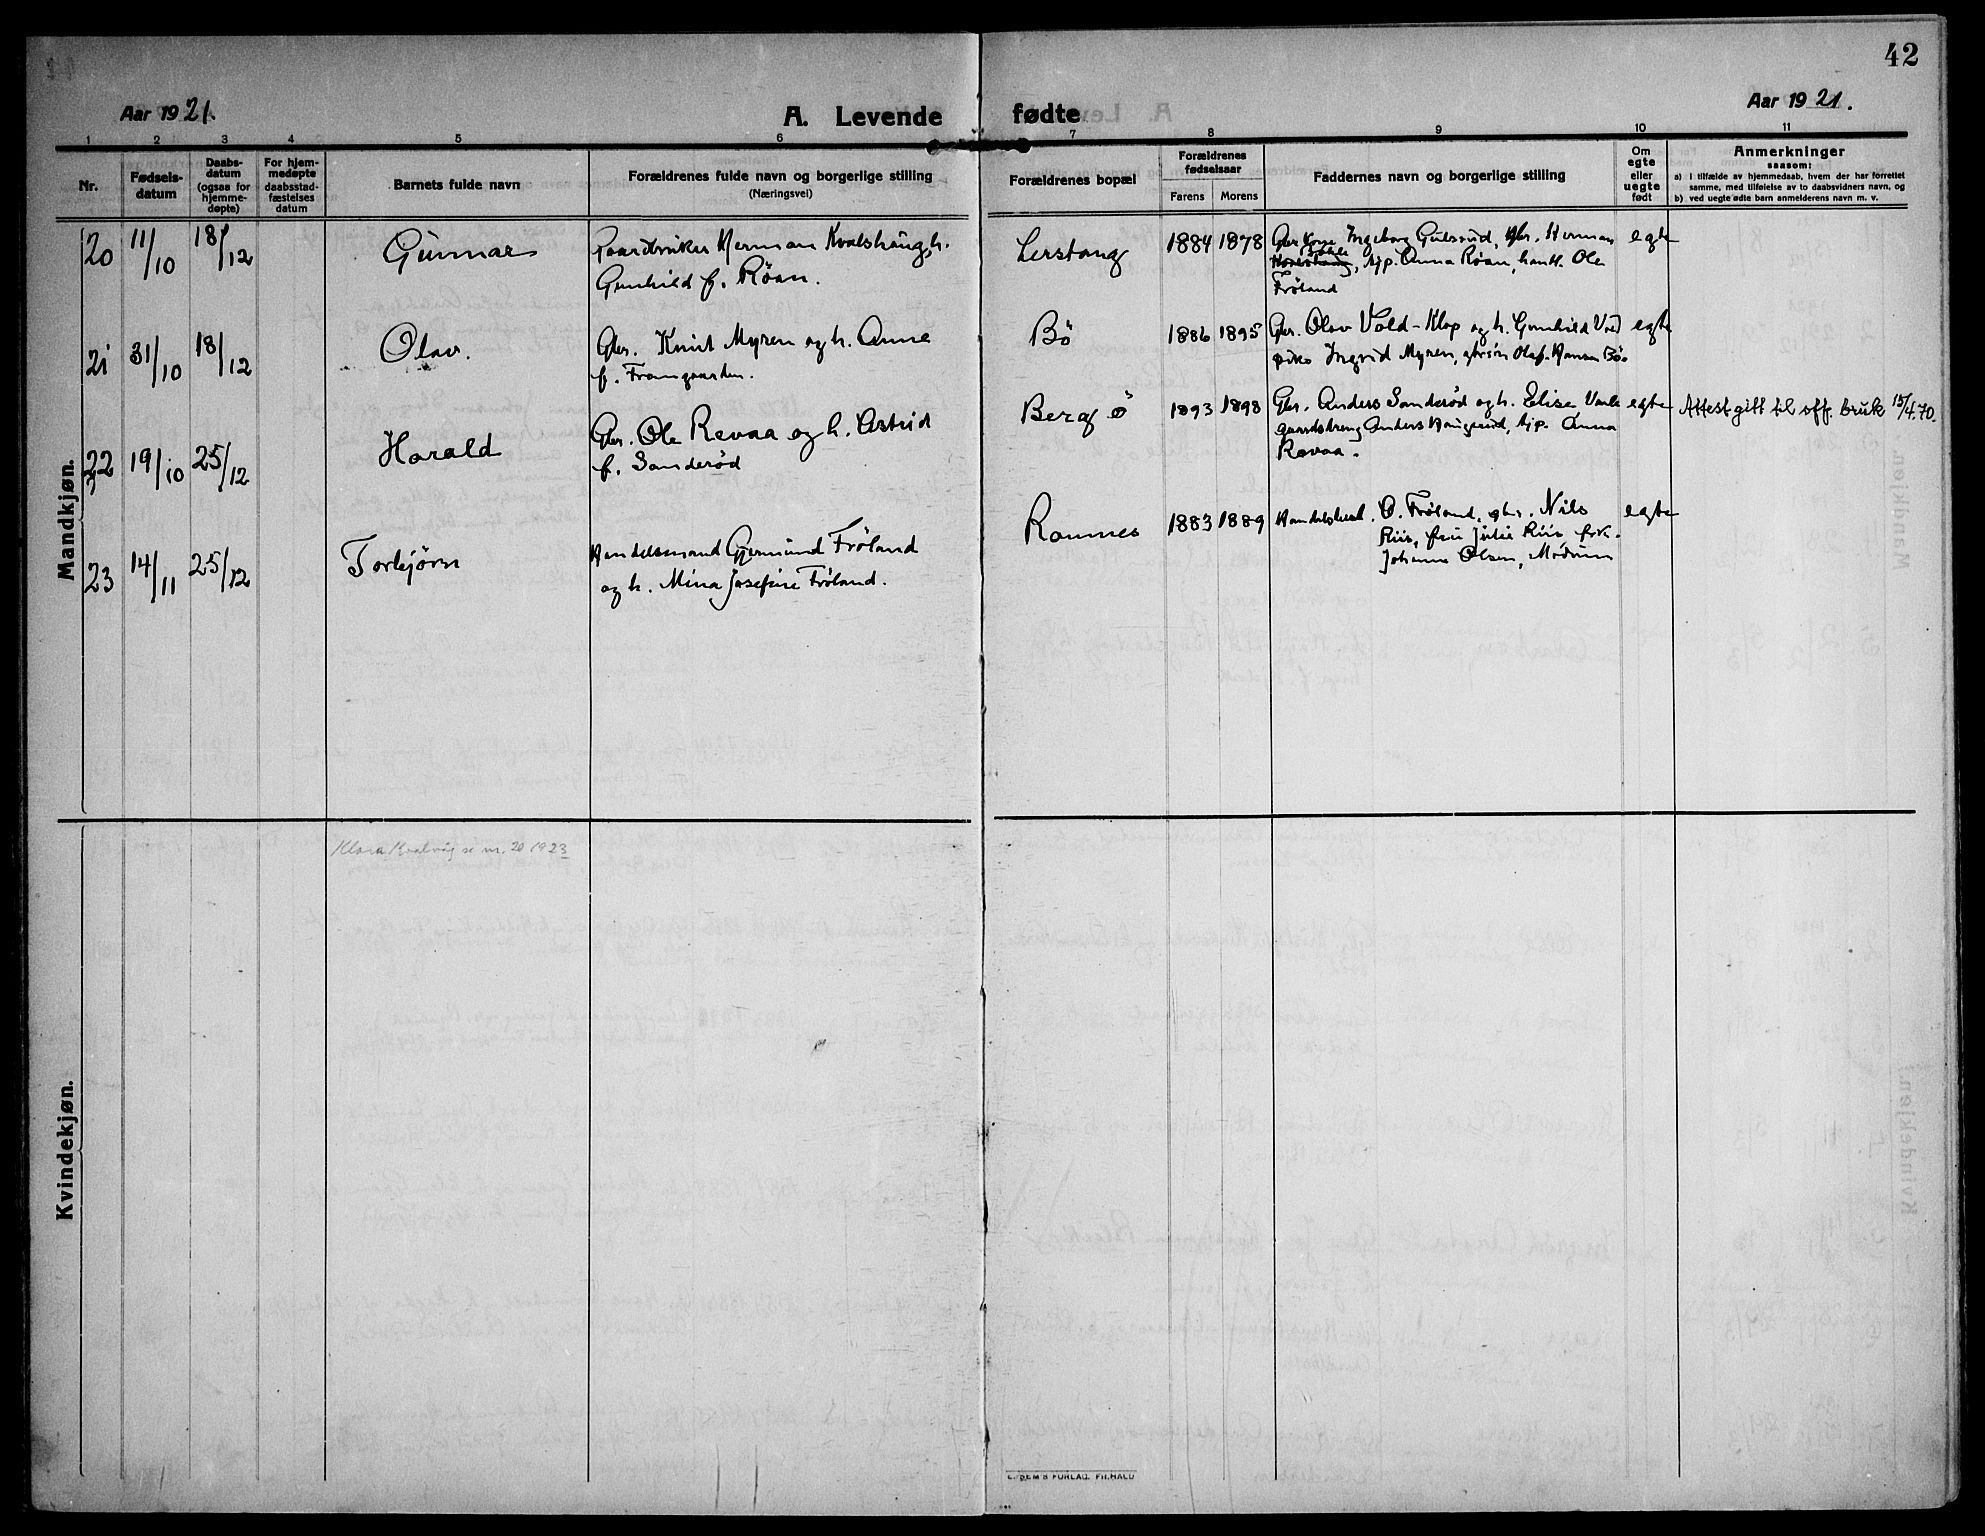 42
Aar 1921.
A. Levende fødte
Aar 1921.
1 2 3 4 5 6 7 8 9 10 11
Nr.
Fødsels-
datum
Daabs-
datum
(ogsaa for
hjemme-
døpte)
For hjem-
medøpte
daabsstad-
fæstelses
datum
Barnets fulde navn
Forældrenes fulde navn og borgerlige stilling
(Næringsvei)
Forældrenes bopæl
Forældrenes
fødselsaar
Farens Morens
Faddernes navn og borgerlige stilling
Om
egte
eller
uegte
født
Anmerkninger
saasom:
a) I tilfælde av hjemmedaab, hvem der har forrettet
samme, med tilføielse av to daabsvidners navn, og
b) ved uegte fødte barn anmelderens navn m. v.
Mandkjøn.
20 11/10 18/12 Gunnar
Gaardbruker Herman Kvalshaug, h.
Gunhild f. Røan.
Lerstang 1884 1878
Gbr Kone Ingeborg Gulsrud, Gbr. Herman
Kvalshaug, pip. Anna Røan, handl. Ole
Frøland
egte
21 31/10 18/12 Olav.
Gbr. Knut Myren og h. Anne
f. Framgaarden.
Bö 1886 1895
Gbr. Olav Vold-Klop og h. Gunhild Vold
pike Ingrid Myren, gbrsøn Olaf Hansen Bö
egte
22 19/10 25/12 Harald
Gbr. Ole Revaa og h. Astrid
f. Sanderød
Berg ö 1893 1898
Gbr. Anders Sanderød og h. Elise
gaardsdreng Anders Haugerud, pip. Anna
Revaa.
egte
Attest gitt til off. bruk 15/4.70.
23 14/11 25/12 Torbjørn
Handelsmand Gjermund Frøland
og h. Mina Josefine Frøland.
Ramnes 1883 1889
Handelsbest. O. Frøland, gbr. Nils
Riis, fru Julie Riis frk.
Johanne Olsen, Modum
egte
Kvindekjøn.
Klara Kvalvåg se nr. 20 1923
FORLAG. FR.HALD